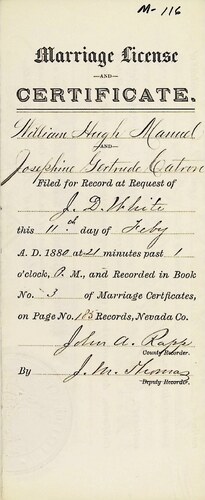 M-116
Marriage License
—AND—
CERTIFICATE.
William Hugh Manuel
—AND—
Josephine Gertrude Catron
Filed for Record at Request of
J. D. White
this 11th day of Feby
A. D. 1880 at 21 minutes past 1
o'clock, P. M., and Recorded in Book
No. 3 of Marriage Certficates,
on Page No. 185 Records, Nevada Co.
John A. Rapp
County Recorder.
By J. M. Thomas
Deputy Recorder